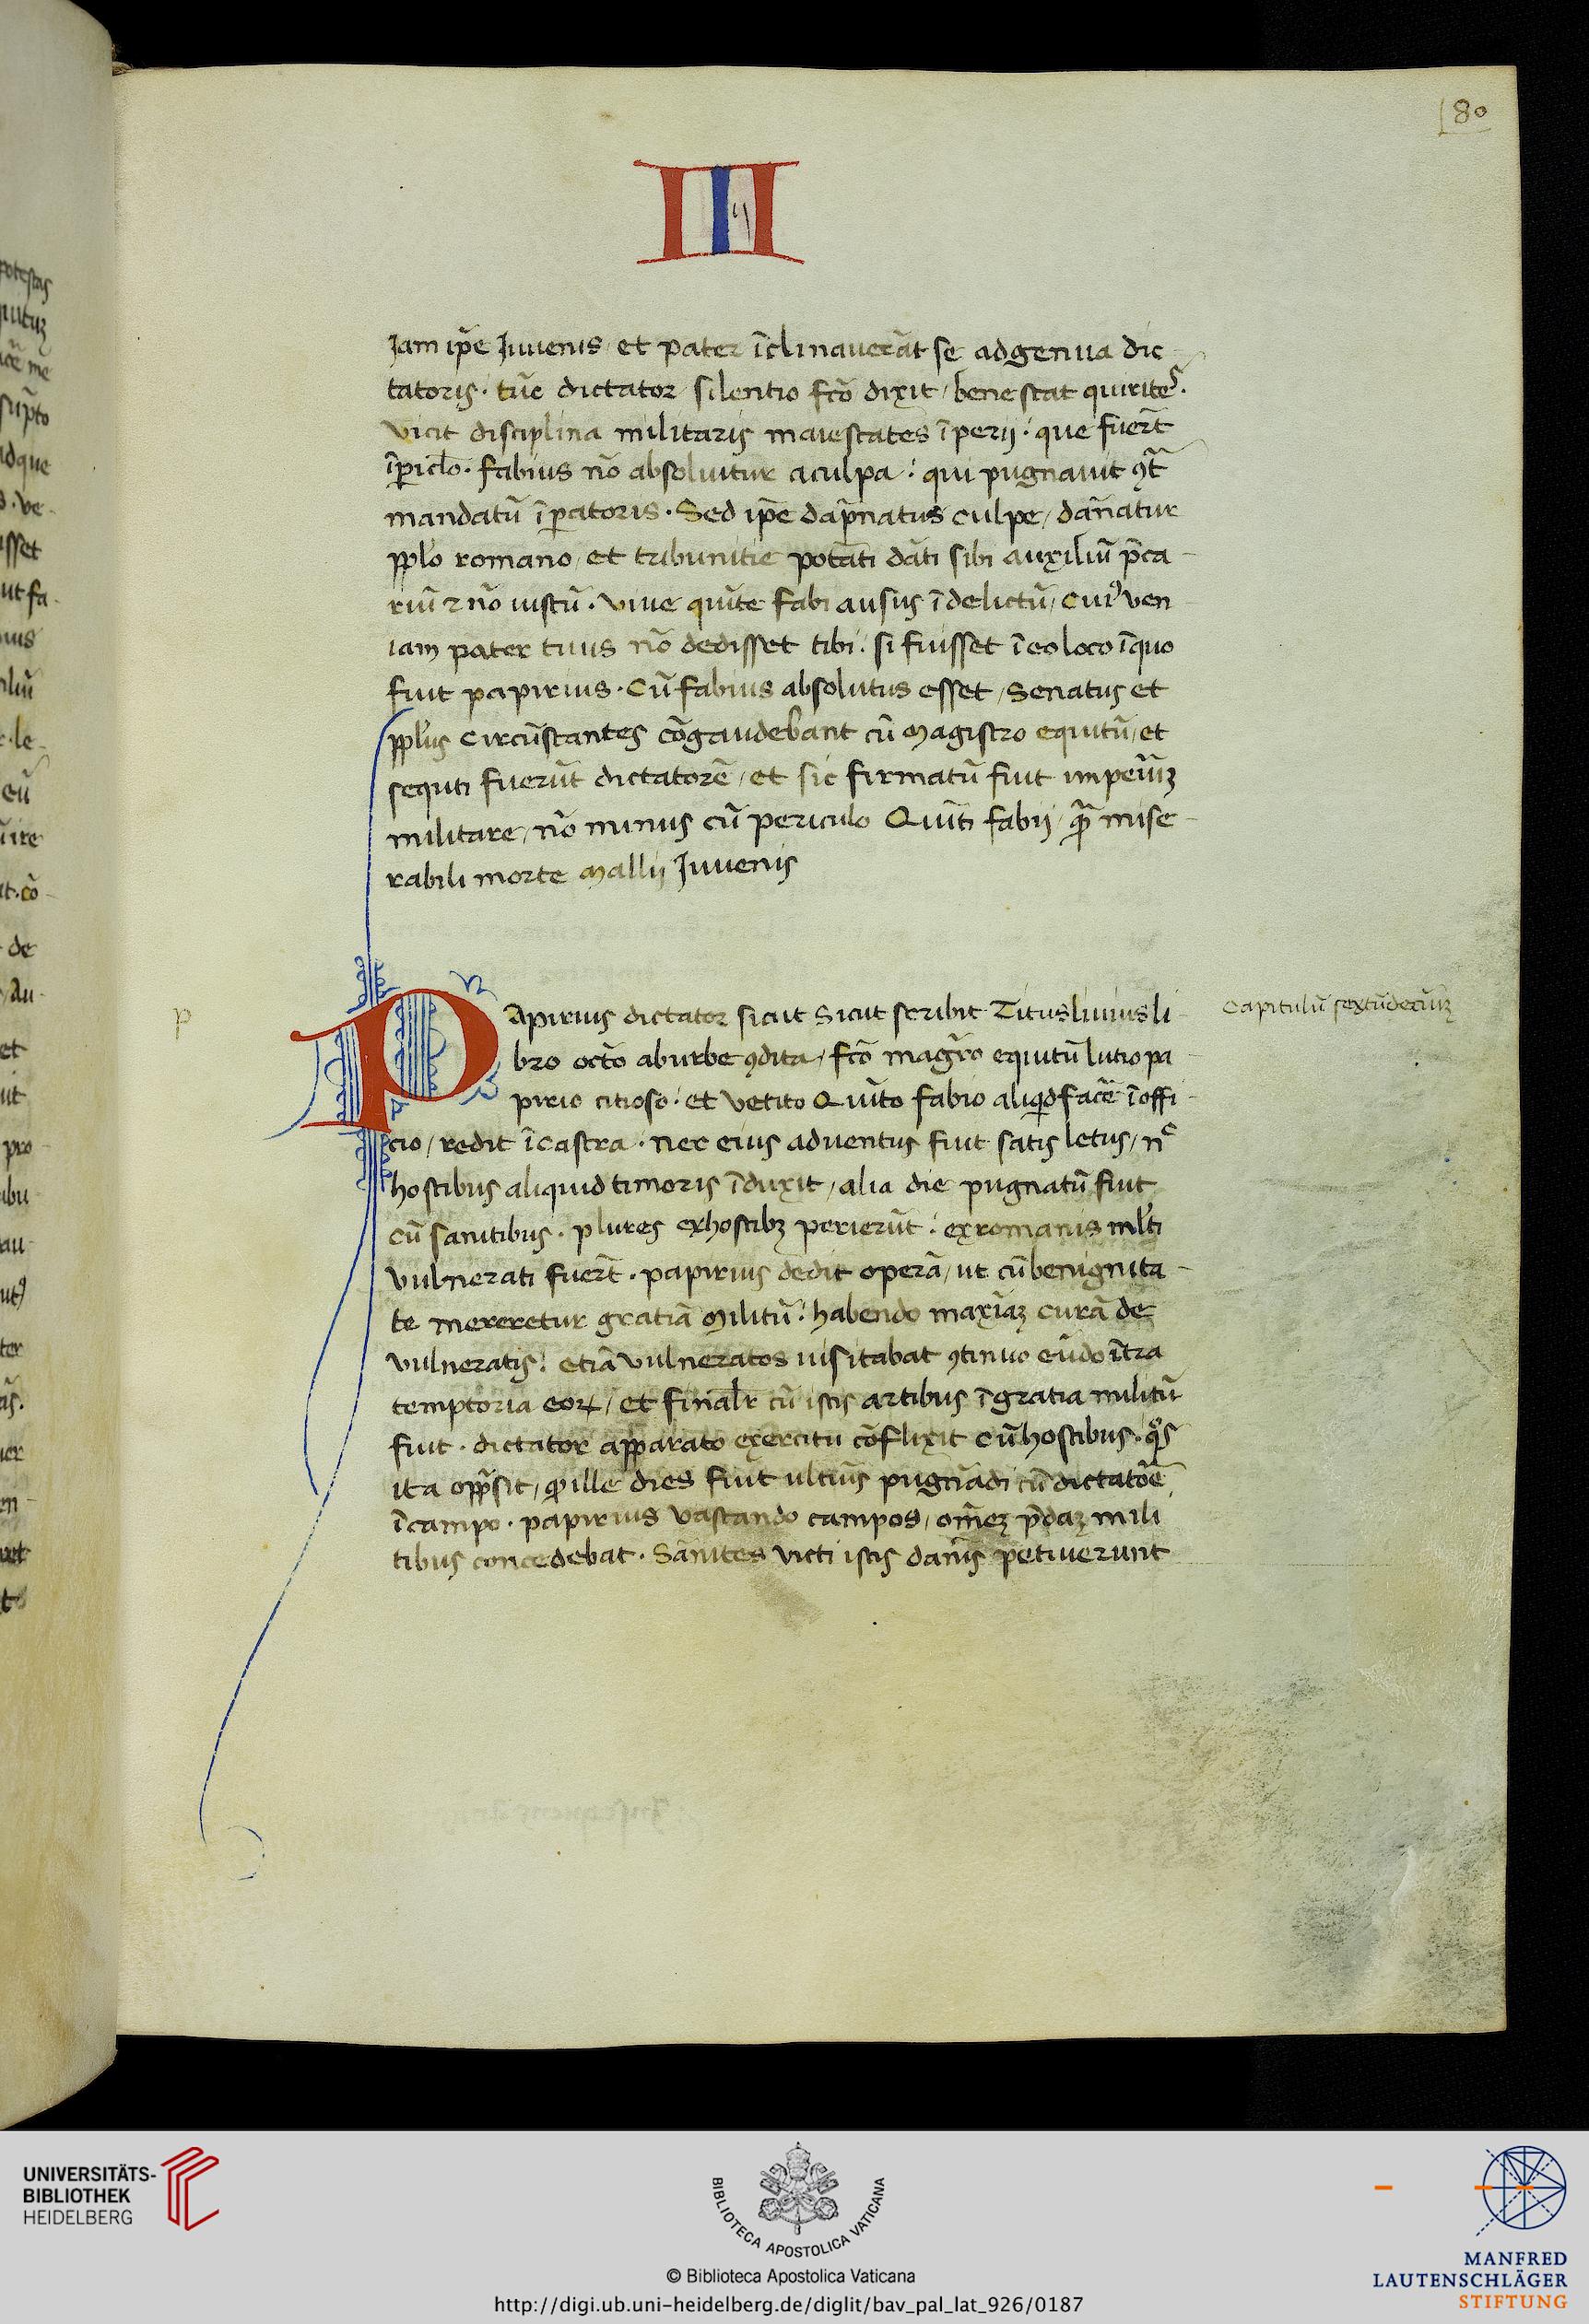 180
III
Jam ip̃e Juvenis et pater ĩclinaverãt se ad genua dic
tatoris · tũc dictator silentio fc̃o dixit / bene stat quirites ·
vicit disciplina militaris maiestates ĩperij : que fuert̃
ĩpiclõ · fabius nõ absolvitur a culpa : qui pugnavit ꝯt̃
mandatũ ĩꝑatoris · Sed ip̃e dap̃natus culpe / dãnatur
pplõ romano / et tribunitie potãti dãti sibi auxiliũ p̃ca
riũ ⁊ nõ iustũ · vive quĩte fabi ausus ĩ delictũ / cuiꝰ ven
iam pater tuus nõ dedisset tibi : si fuisset ĩ eo loco ĩ quo
fuit papirius · Cũ fabius absolutus esset / Senatus et
pplũs circũstantes cõgaudebant cũ Magistro equitũ / et
sequti fuerũt dictatorẽ / et sic firmatũ fuit imperiũꝫ
militare / nõ minus cũ periculo Quĩti fabij / quã mise
rabili morte Mallij Juvenis
p
Papirius dictator sicut Sicut scribit Titus livius li
Capitulũ sextũdecimꝫ
bro octõ ab urbe ꝯdita / fc̃o magr̃o equitũ lutio pa
pirio citioso : et vetito Quĩto fabio aliqd̃ facẽ ĩ offi
cio / redit ĩ castra · nec eius adventus fuit satis letus / nc̃
hostibus aliquid timoris ĩduxit / alia die pugnatũ fuit
cũ sanitibus · plures ex hostibꝫ perierũt : ex romanis ml̃ti
vulnerati fuert̃ · papirius dedit operã / ut cũ benignita
te mereretur gratiã Militũ : habendo maxĩaꝫ curã de
vulneratis : etiã vulneratos visitabat ꝯtinuo eũdo ĩtra
temptoria eoꝝ / et finalr̃ cũ istis artibus ĩ gratia militũ
fuit · dictator apparato exercitu cõflixit cũ hostibus · qõs
ita opp̃sit / ꝙ ille dies fuit ultiũs pugnãdi cũ dictatoẽ
ĩ campo · papirius vastando campos / om̃eꝫ p̃daꝫ mili
tibus concedebat · Sãnites victi istis dãnis petiverunt
UNIVERSITÄTS-
BIBLIOTHEK
HEIDELBERG
BIBLIOTECA APOSTOLICA VATICANA
© Biblioteca Apostolica Vaticana
http://digi.ub.uni-heidelberg.de/diglit/bav_pal_lat_926/0187
MANFRED
LAUTENSCHLÄGER
STIFTUNG